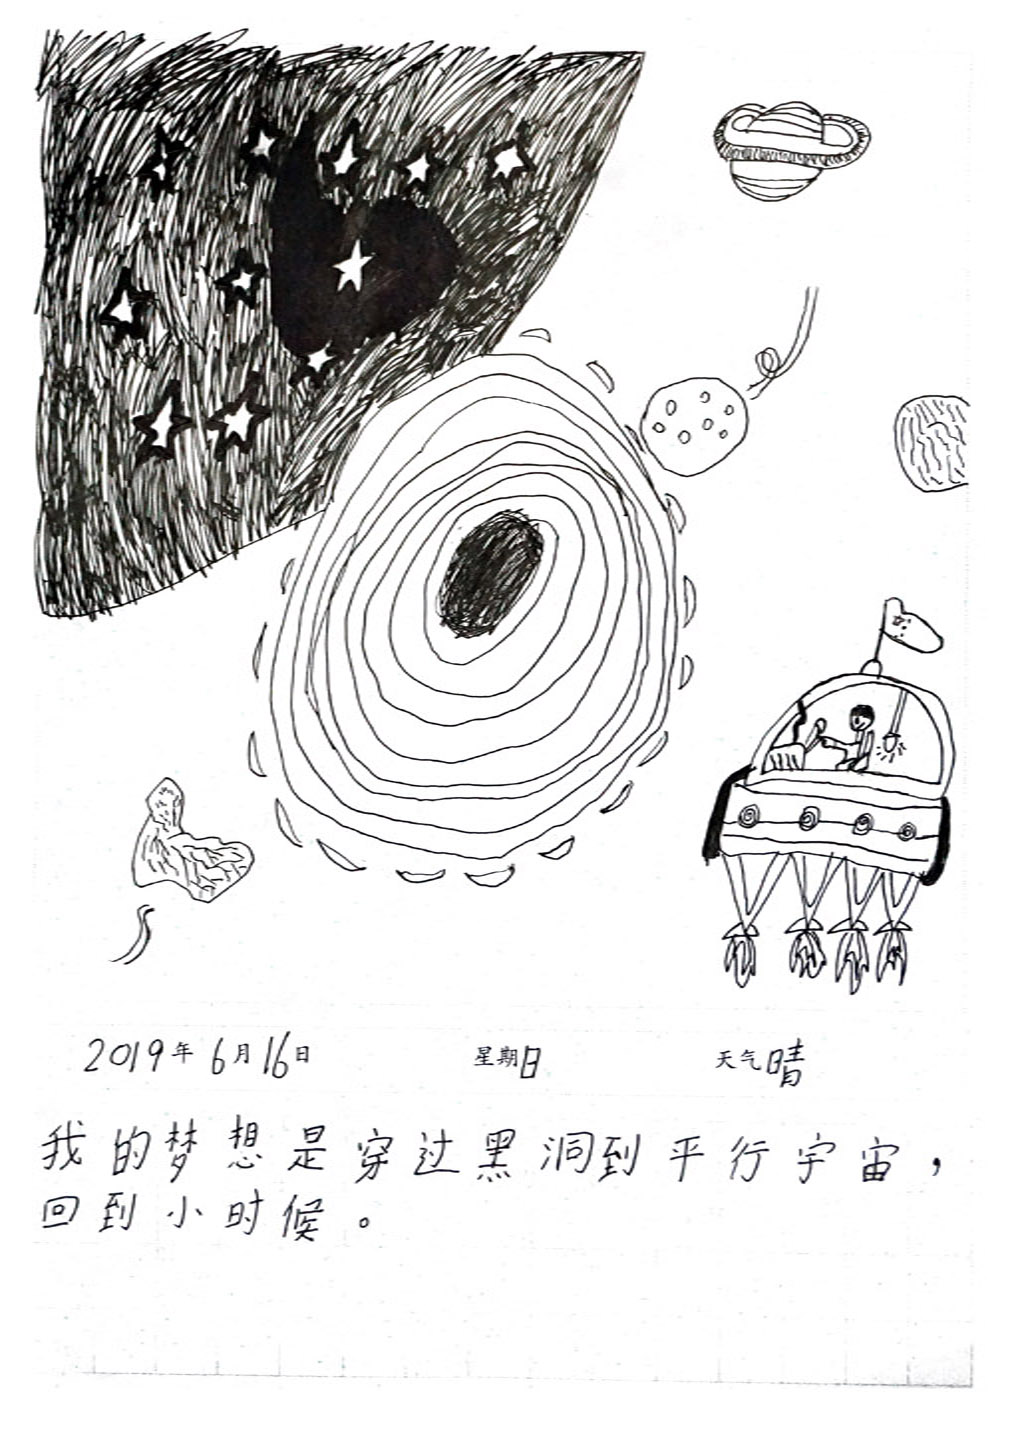 2019年6月16日 星期日 天气晴
我的梦想是穿过黑洞到平行宇宙，
回到小时候。